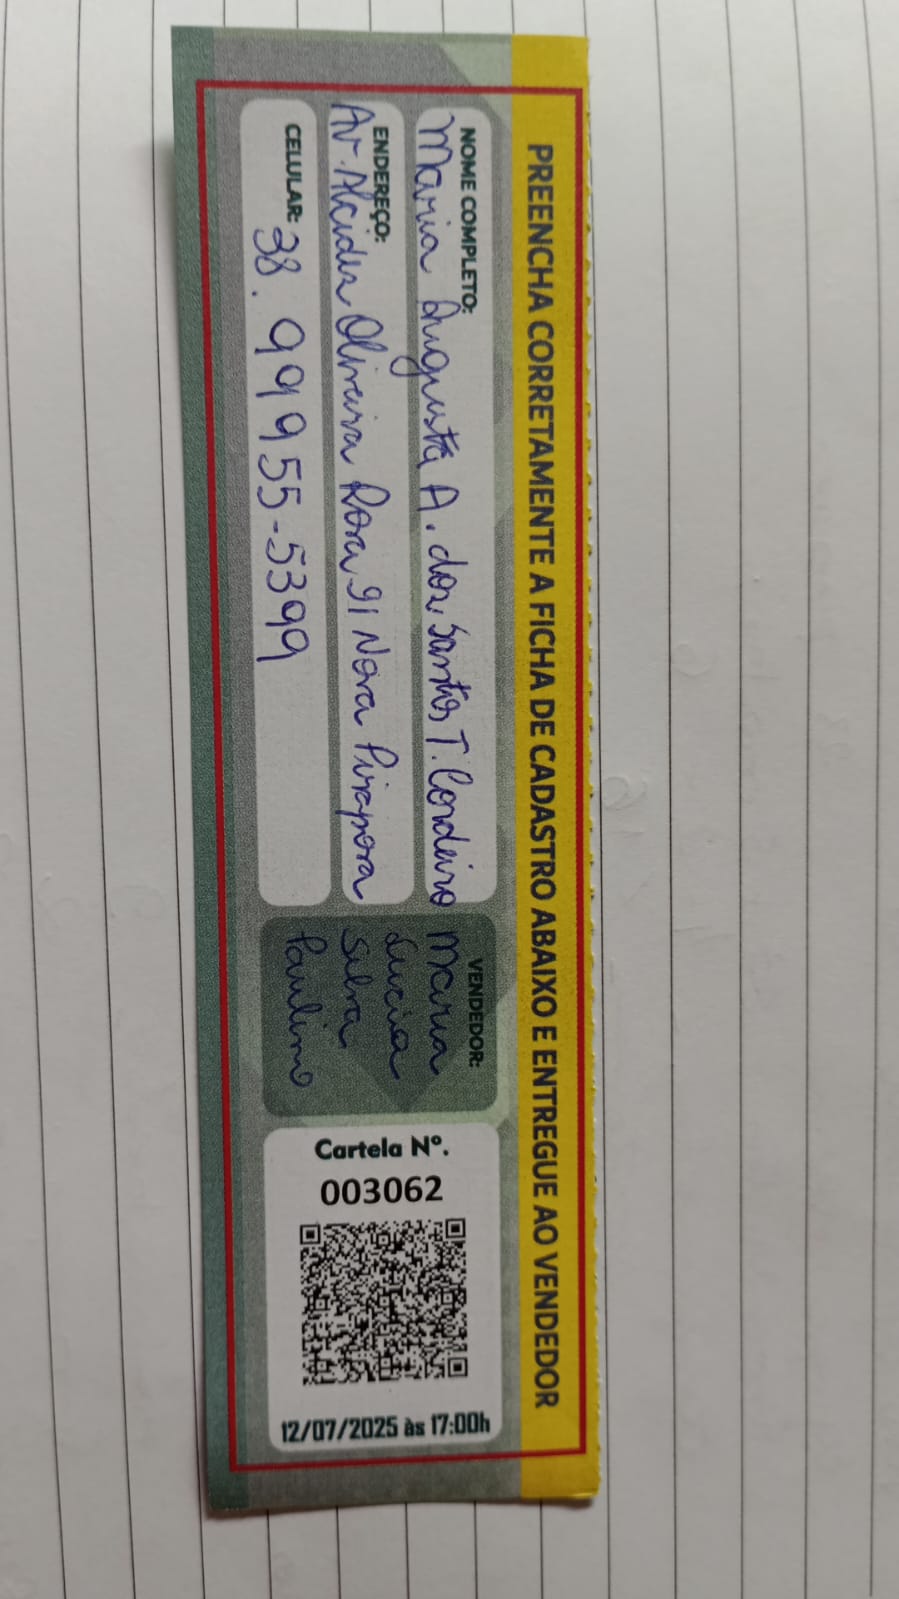 PREENCHA CORRETAMENTE A FICHA DE CADASTRO ABAIXO E ENTREGUE AO VENDEDOR
NOME COMPLETO:
Maria Augusta A. dos Santos T. Cordeiro
ENDEREÇO:
Av. Alcides Oliveira Rosa 91 Nova Pirapora
CELULAR: 38. 99955-5399
VENDEDOR:
Maria
Lucia
Silva
Paulino
Cartela Nº.
003062
12/07/2025 às 17:00h